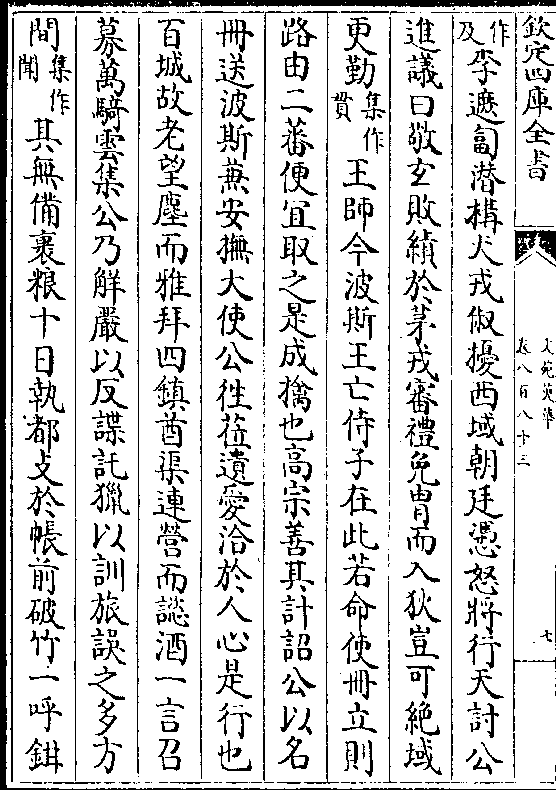 欽定四庫全書
文苑英華
卷八百八十三
七
作及李遮匐潜構犬戎俶擾西域朝廷憑怒將行天討公
進議曰敬玄敗績於茅戎審禮免冑而入狄豈可絶域
更勤集作貫王師今波斯王亡侍子在此若命使冊立則
路由二蕃便宜取之是成擒也高宗善其計詔公以名
冊送波斯兼安撫大使公徃莅遺愛洽於人心是行也
百城故老望塵而雅拜四鎮酋渠連營而謐酒一言召
募萬騎雲集公乃解嚴以反諜託獵以訓旅誤之多方
間集作聞其無備裹粮十日執都支於帳前破竹一呼鉗